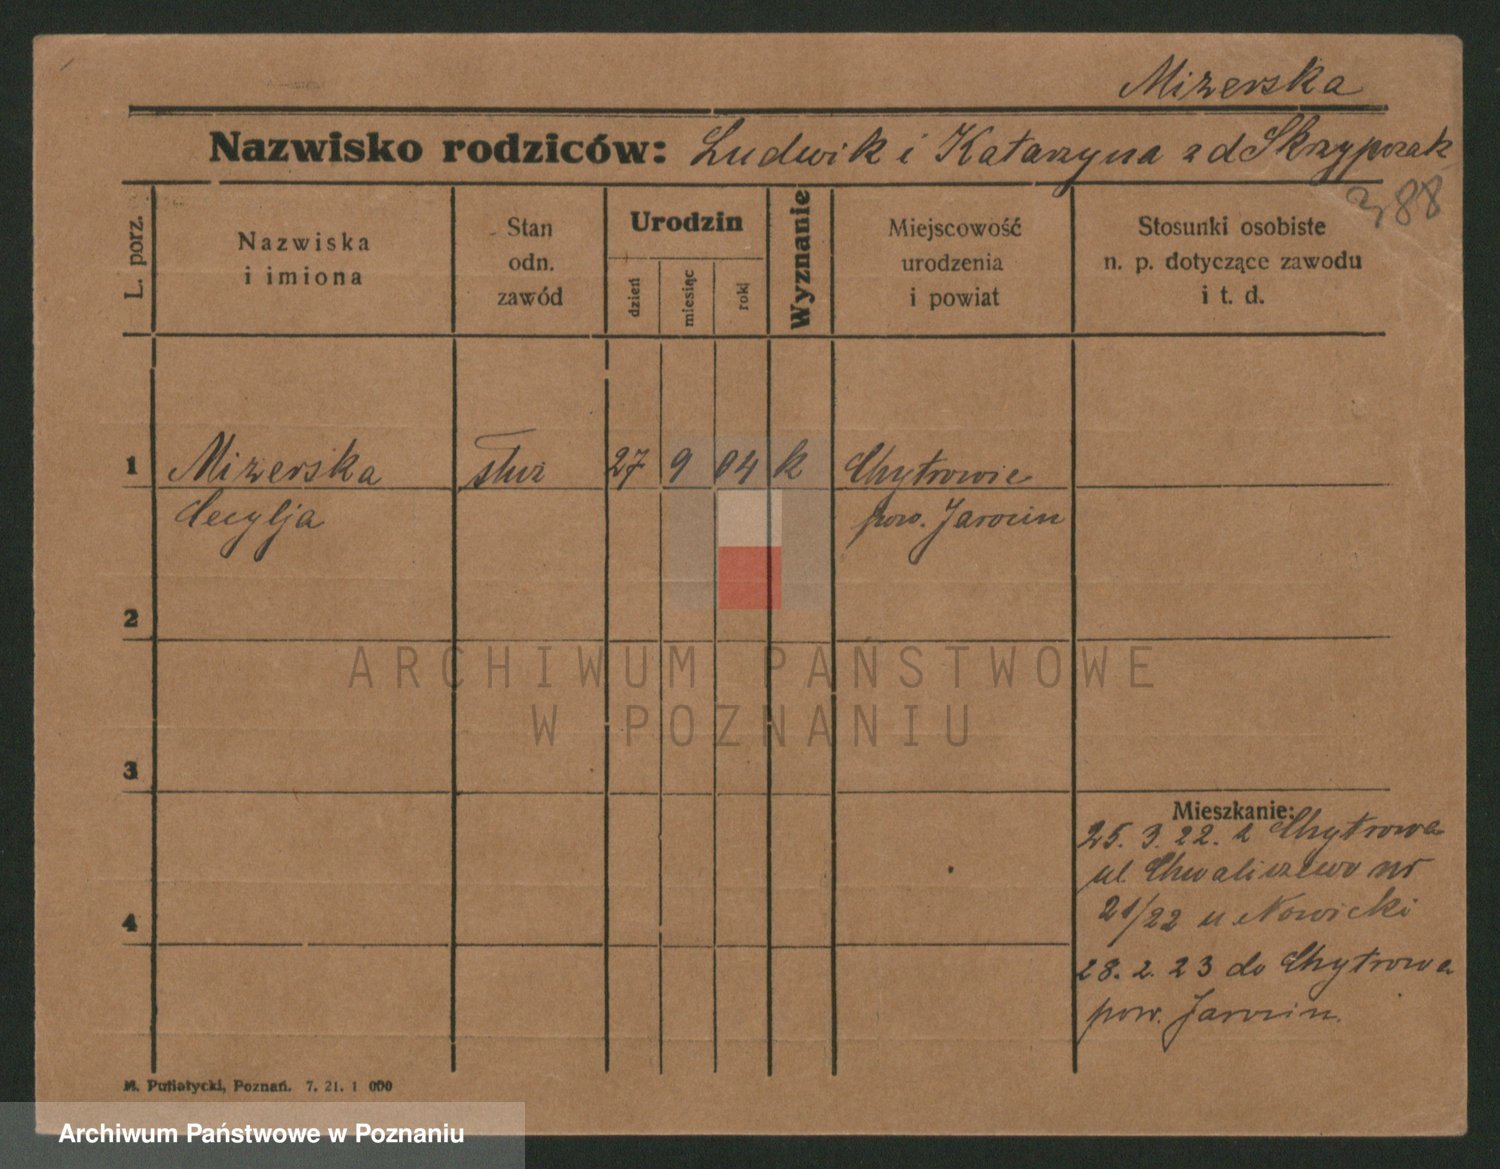 Mizerska
Nazwisko rodziców: Ludwik i Katarzyna z d Skrzypczak
388
L. porz.
Nazwiska
i imiona
Stan
odn.
zawód
Urodzin
dzień
miesiąc
rok
Wyznanie
Miejscowość
urodzenia
i powiat
Stosunki osobiste
n. p. dotyczące zawodu
i t. d.
1 Mizerska służ 27 9 04 k Chytrowie
Cecylja pow. Jarocin
2
ARCHIWUM PAŃSTWOWE
W POZNANIU
3
Mieszkanie:
25. 3. 22. z Chytrowa
ul Chwaliszewo nr
21/22 u Nowicki
4
28. 2. 23 do Chytrowa
pow. Jarocin.
M. Putiatycki, Poznań. 7. 21. 1 000
Archiwum Państwowe w Poznaniu